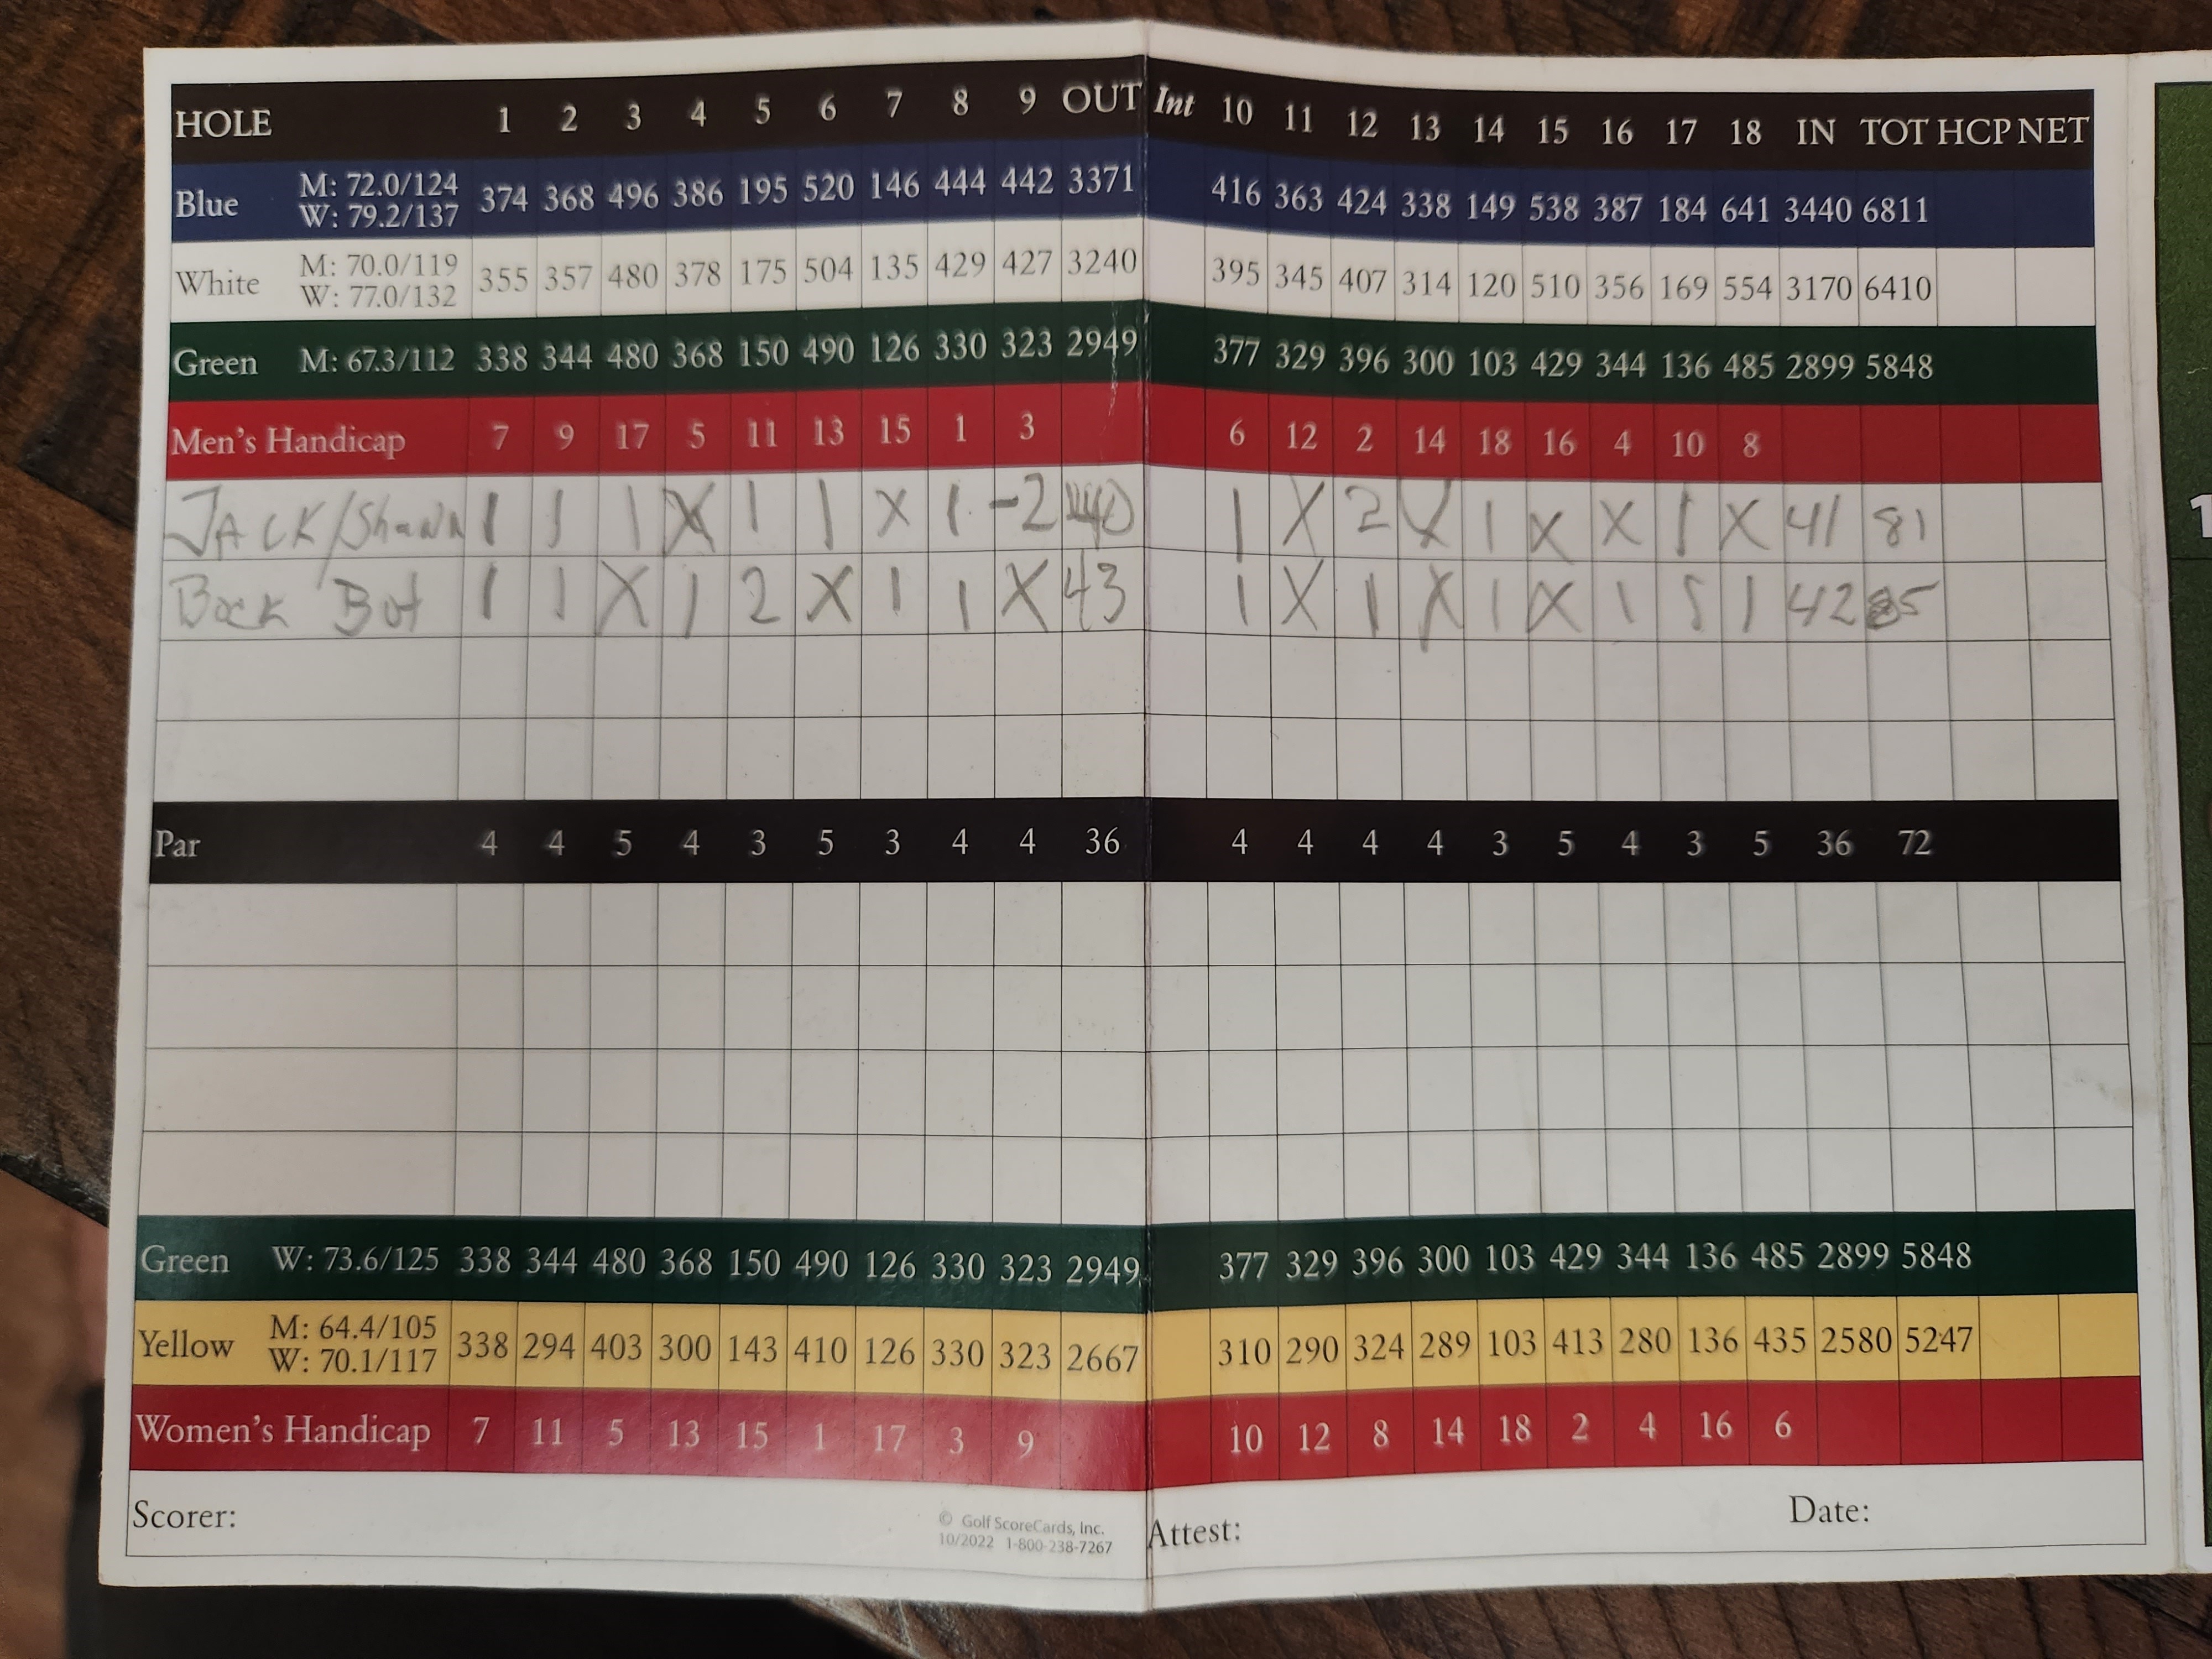 HOLE 1 2 3 4 5 6 7 8 9 OUT Int 10 11 12 13 14 15 16 17 18 IN TOT HCP NET
Blue M: 72.0/124 W: 79.2/137 374 368 496 386 195 520 146 444 442 3371 416 363 424 338 149 538 387 184 641 3440 6811
White M: 70.0/119 W: 77.0/132 355 357 480 378 175 504 135 429 427 3240 395 345 407 314 120 510 356 169 554 3170 6410
Green M: 67.3/112 338 344 480 368 150 490 126 330 323 2949 377 329 396 300 103 429 344 136 485 2899 5848
Men's Handicap 7 9 17 5 11 13 15 1 3 6 12 2 14 18 16 4 10 8
JACK/Shawn 1 1 1 X 1 1 X 1 -2 40 1 X 2 X 1 X X 1 X 41 81
Bock Bot 1 1 X 1 2 X 1 1 X 43 1 X 1 X 1 X 1 1 1 42 85
Par 4 4 5 4 3 5 3 4 4 36 4 4 4 4 3 5 4 3 5 36 72
Green W: 73.6/125 338 344 480 368 150 490 126 330 323 2949 377 329 396 300 103 429 344 136 485 2899 5848
Yellow M: 64.4/105 W: 70.1/117 338 294 403 300 143 410 126 330 323 2667 310 290 324 289 103 413 280 136 435 2580 5247
Women's Handicap 7 11 5 13 15 1 17 3 9 10 12 8 14 18 2 4 16 6
Scorer: © Golf ScoreCards, Inc. Attest: Date:
10/2022 1-800-238-7267